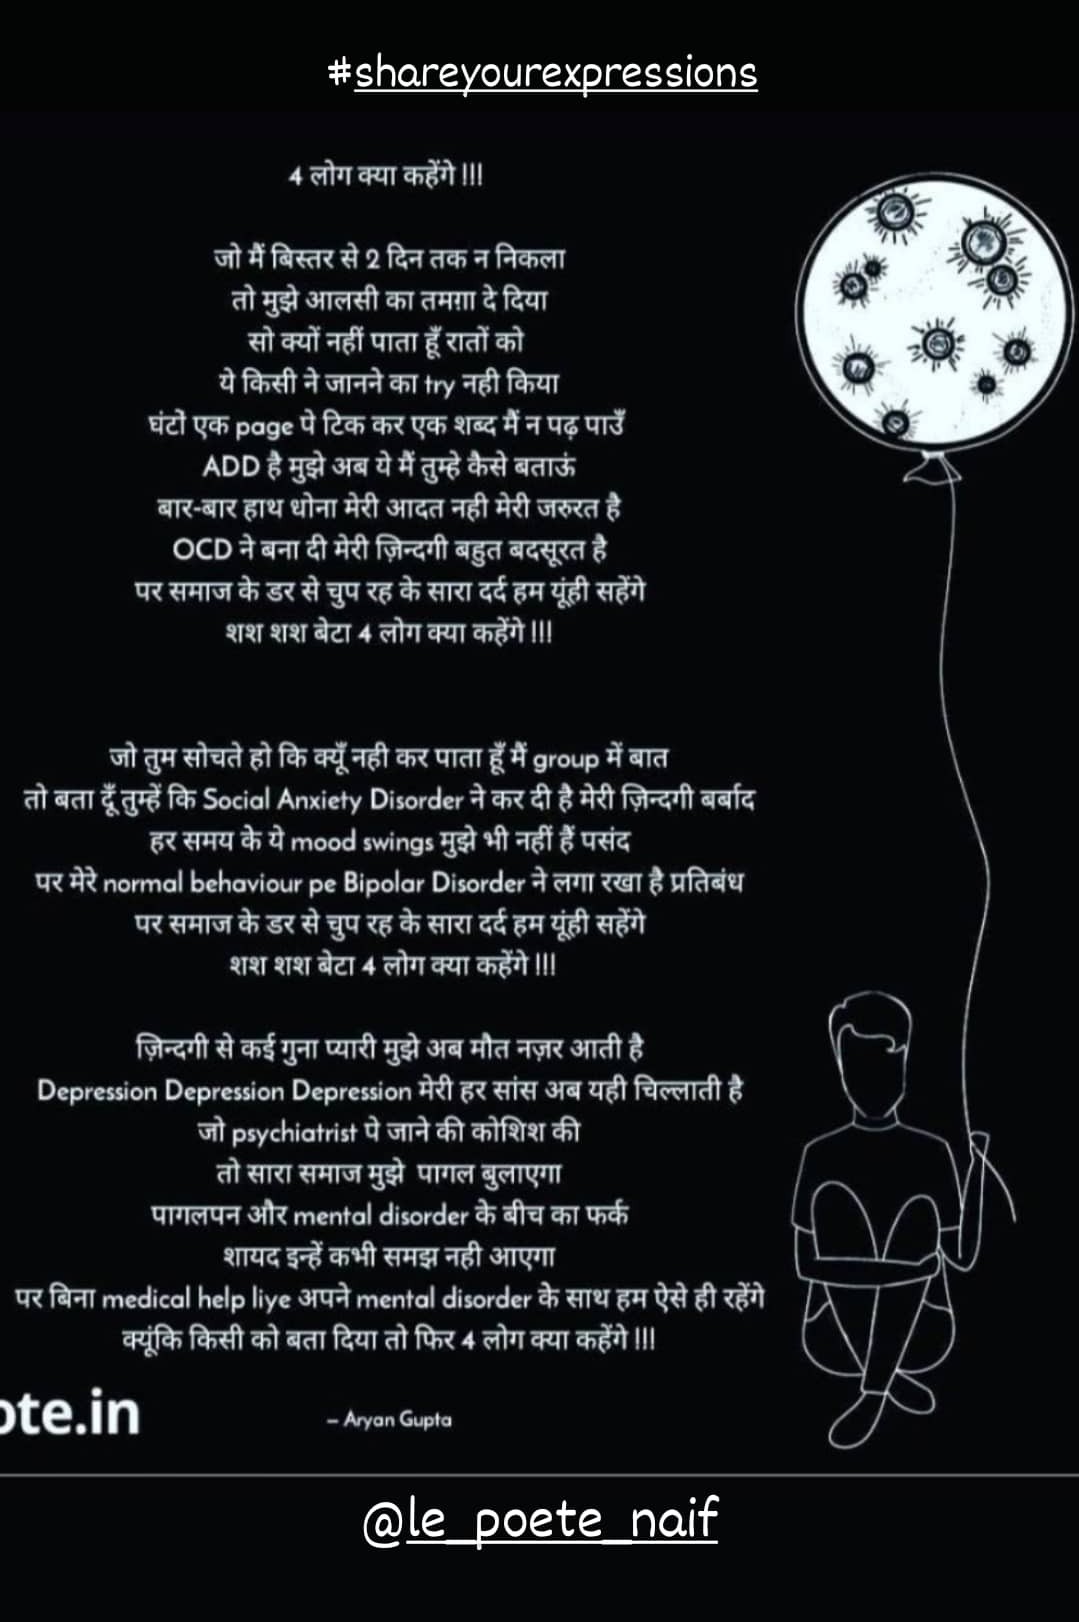 #shareyourexpressions
4 लोग क्या कहेंगे !!!
जो मैं बिस्तर से 2 दिन तक न निकला
तो मुझे आलसी का तमग़ा दे दिया
सो क्यों नहीं पाता हूँ रातों को
ये किसी ने जानने का try नही किया
घंटो एक page पे टिक कर एक शब्द मैं न पढ़ पाउँ
ADD है मुझे अब ये मैं तुम्हे कैसे बताऊं
बार-बार हाथ धोना मेरी आदत नही मेरी जरुरत है
OCD ने बना दी मेरी ज़िन्दगी बहुत बदसूरत है
पर समाज के डर से चुप रह के सारा दर्द हम यूंही सहेंगे
शश शश बेटा 4 लोग क्या कहेंगे !!!
जो तुम सोचते हो कि क्यूँ नही कर पाता हूँ मैं group में बात
तो बता दूँ तुम्हें कि Social Anxiety Disorder ने कर दी है मेरी ज़िन्दगी बर्बाद
हर समय के ये mood swings मुझे भी नहीं हैं पसंद
पर मेरे normal behaviour pe Bipolar Disorder ने लगा रखा है प्रतिबंध
पर समाज के डर से चुप रह के सारा दर्द हम यूंही सहेंगे
शश शश बेटा 4 लोग क्या कहेंगे !!!
ज़िन्दगी से कई गुना प्यारी मुझे अब मौत नज़र आती है
Depression Depression Depression मेरी हर सांस अब यही चिल्लाती है
जो psychiatrist पे जाने की कोशिश की
तो सारा समाज मुझे पागल बुलाएगा
पागलपन और mental disorder के बीच का फर्क
शायद इन्हें कभी समझ नही आएगा
पर बिना medical help liye अपने mental disorder के साथ हम ऐसे ही रहेंगे
क्यूंकि किसी को बता दिया तो फिर 4 लोग क्या कहेंगे !!!
ote.in
– Aryan Gupta
@le_poete_naif